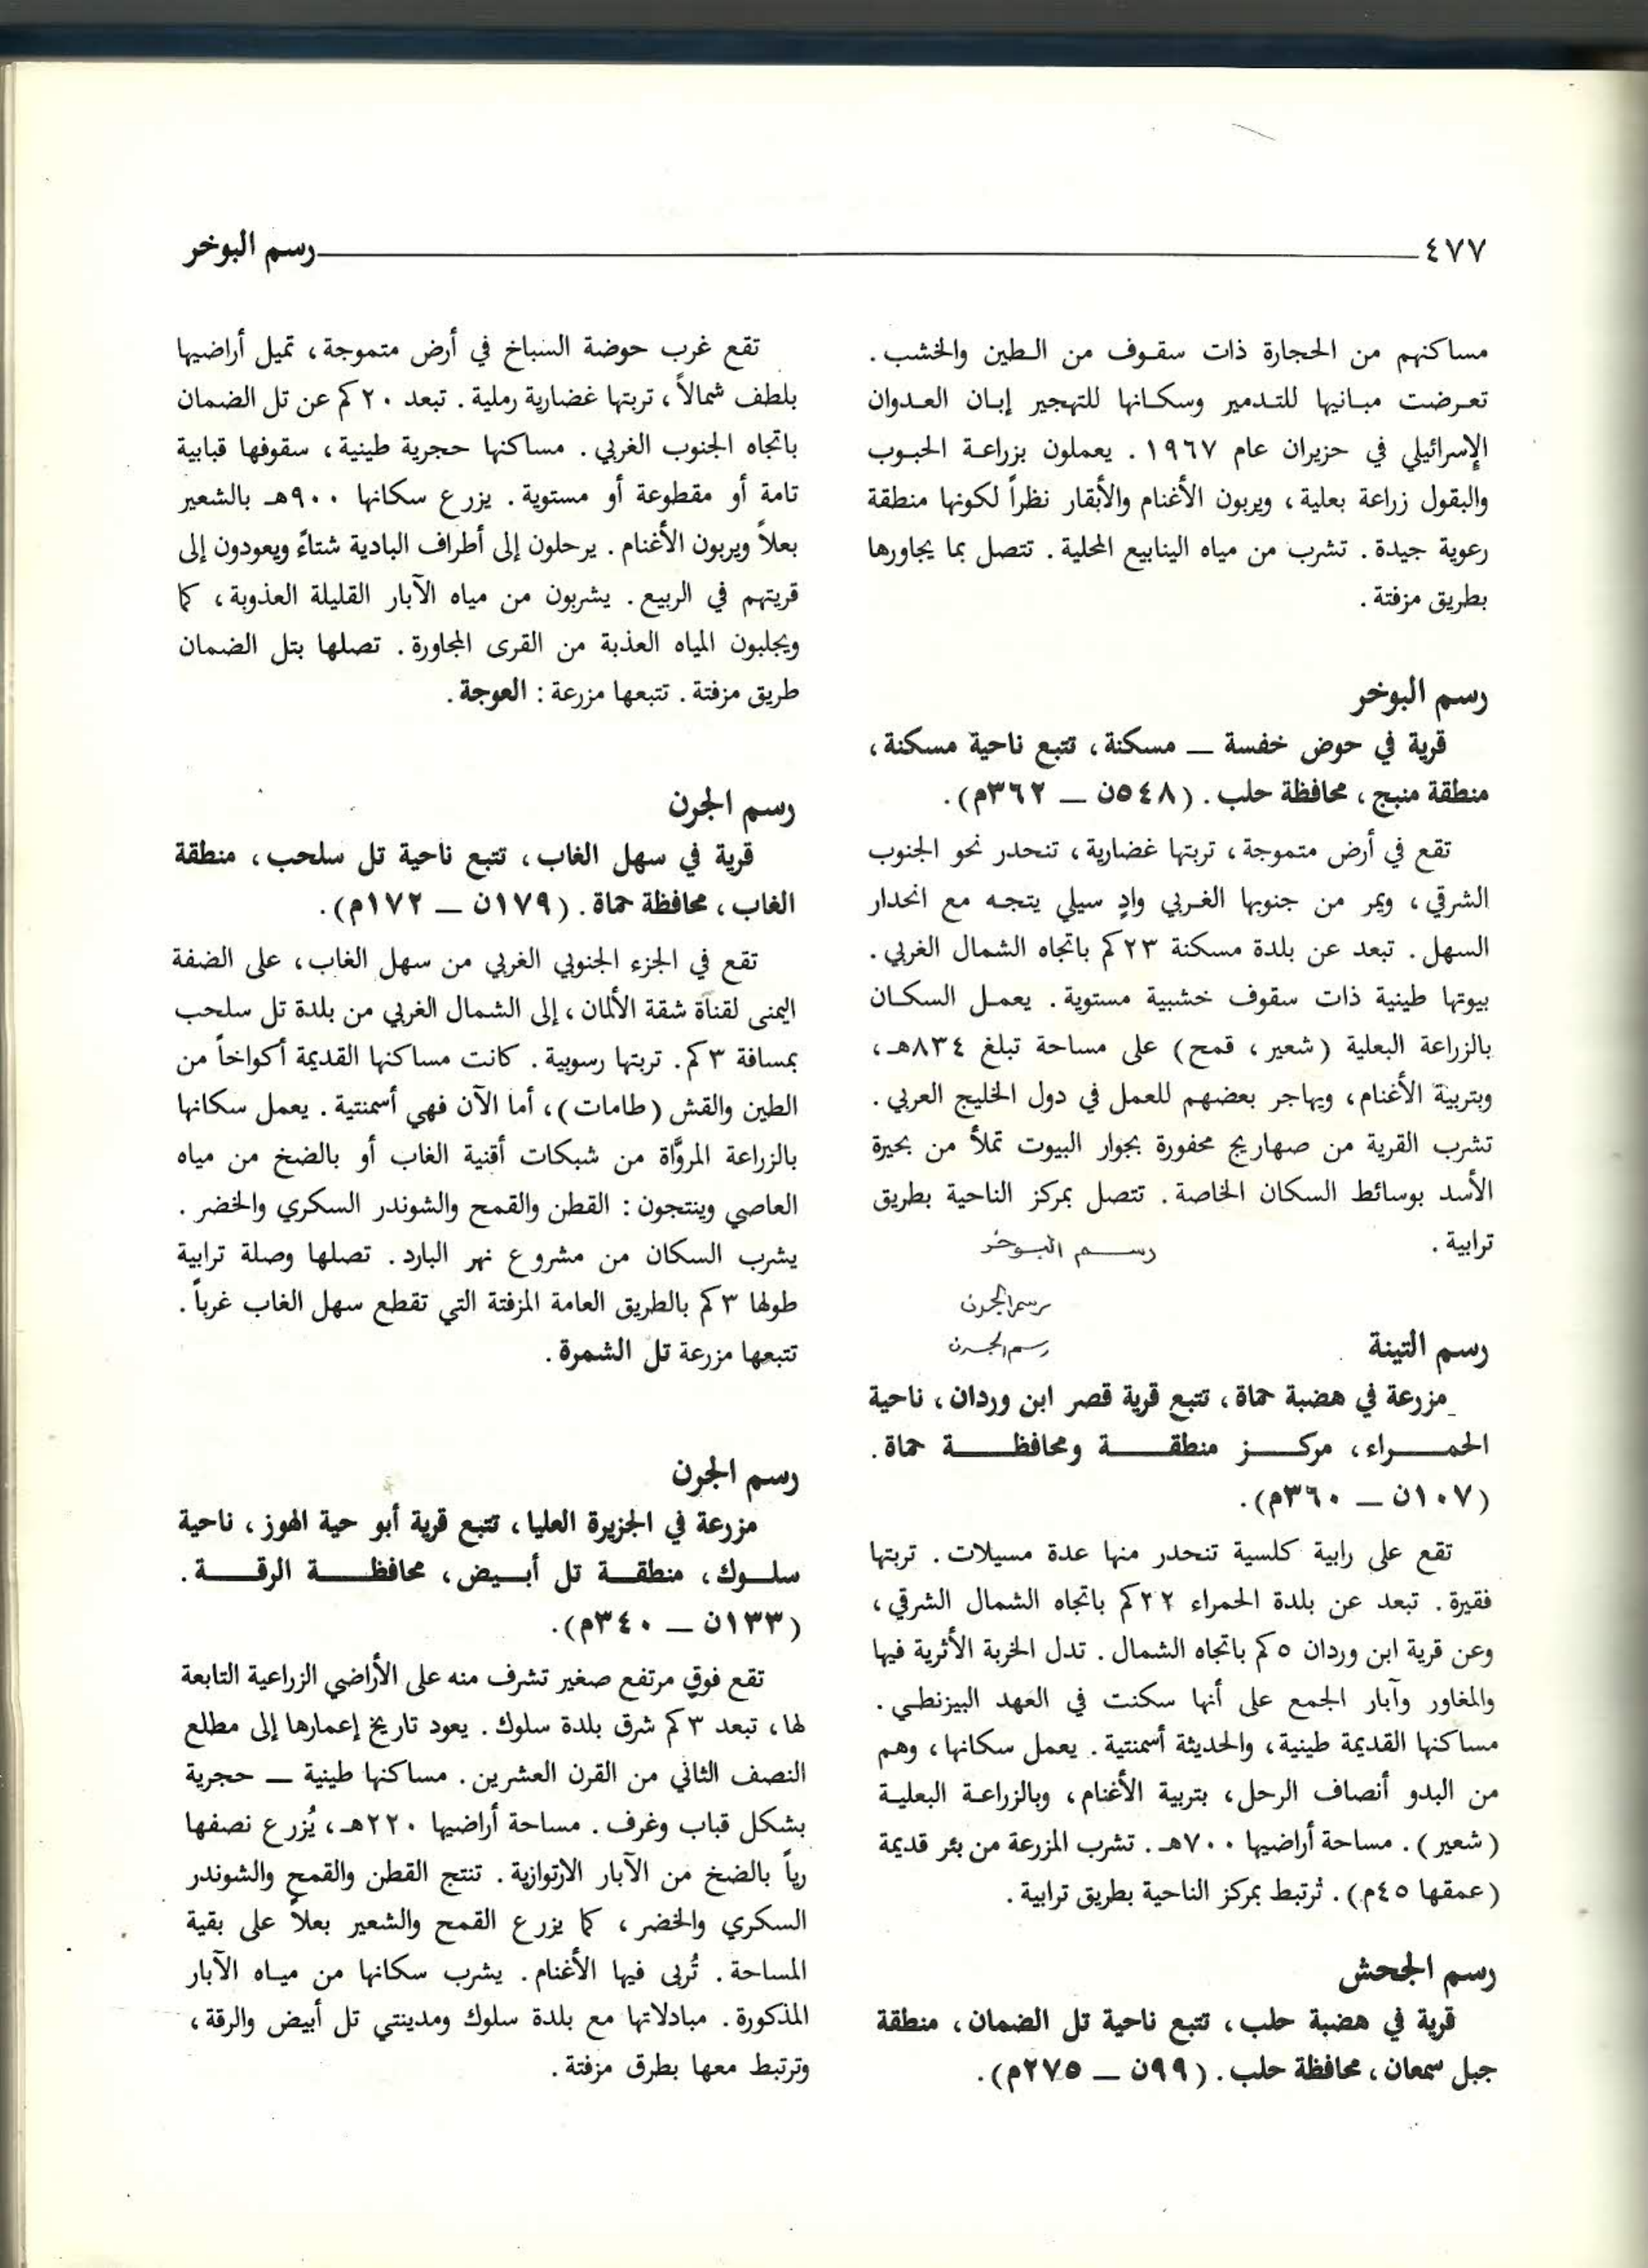 ٤٧٧ رسم البوخر
مساكنهم من الحجارة ذات سقوف من الطين والخشب .
تعرضت مبانيها للتدمير وسكانها للتهجير إبان العدوان
الإسرائيلي في حزيران عام ١٩٦٧ . يعملون بزراعة الحبوب
والبقول زراعة بعلية ، ويربون الأغنام والأبقار نظراً لكونها منطقة
رعوية جيدة . تشرب من مياه الينابيع المحلية . تتصل بما يجاورها
بطريق مزفتة .
رسم البوخر
قرية في حوض خفسة ــ مسكنة ، تتبع ناحية مسكنة ،
منطقة منبج ، محافظة حلب . (٥٤٨ن ــ ٣٦٢م) .
تقع في أرض متموجة ، تربتها غضارية ، تنحدر نحو الجنوب
الشرقي ، ويمر من جنوبها الغربي وادٍ سيلي يتجه مع انحدار
السهل . تبعد عن بلدة مسكنة ٢٣كم باتجاه الشمال الغربي .
بيوتها طينية ذات سقوف خشبية مستوية . يعمل السكان
بالزراعة البعلية (شعير ، قمح) على مساحة تبلغ ٨٣٤هـ ،
وبتربية الأغنام ، ويهاجر بعضهم للعمل في دول الخليج العربي .
تشرب القرية من صهاريج محفورة بجوار البيوت تملأ من بحيرة
الأسد بوسائط السكان الخاصة . تتصل بمركز الناحية بطريق
ترابية .
رسم البوخر
رسم الجرن
رسم الجرن
رسم التينة
مزرعة في هضبة حماة ، تتبع قرية قصر ابن وردان ، ناحية
الحمراء ، مركز منطقة ومحافظة حماة .
(١٠٧ن ــ ٣٦٠م) .
تقع على رابية كلسية تنحدر منها عدة مسيلات . تربتها
فقيرة . تبعد عن بلدة الحمراء ٢٢كم باتجاه الشمال الشرقي ،
وعن قرية ابن وردان ٥كم باتجاه الشمال . تدل الخربة الأثرية فيها
والمغاور وآبار الجمع على أنها سكنت في العهد البيزنطي .
مساكنها القديمة طينية ، والحديثة أسمنتية . يعمل سكانها ، وهم
من البدو أنصاف الرحل ، بتربية الأغنام ، وبالزراعة البعلية
(شعير) . مساحة أراضيها ٧٠٠هـ . تشرب المزرعة من بئر قديمة
(عمقها ٤٥م) . ترتبط بمركز الناحية بطريق ترابية .
رسم الجحش
قرية في هضبة حلب ، تتبع ناحية تل الضمان ، منطقة
جبل سمعان ، محافظة حلب . (٩٩ن ــ ٢٧٥م) .
تقع غرب حوضة السباخ في أرض متموجة ، تميل أراضيها
بلطف شمالاً ، تربتها غضارية رملية . تبعد ٢٠كم عن تل الضمان
باتجاه الجنوب الغربي . مساكنها حجرية طينية ، سقوفها قبابية
تامة أو مقطوعة أو مستوية . يزرع سكانها ٩٠٠هـ بالشعير
بعلاً ويربون الأغنام . يرحلون إلى أطراف البادية شتاءً ويعودون إلى
قريتهم في الربيع . يشربون من مياه الآبار القليلة العذوبة ، كما
ويجلبون المياه العذبة من القرى المجاورة . تصلها بتل الضمان
طريق مزفتة . تتبعها مزرعة : العوجة .
رسم الجرن
قرية في سهل الغاب ، تتبع ناحية تل سلحب ، منطقة
الغاب ، محافظة حماة . (١٧٩ن ــ ١٧٢م) .
تقع في الجزء الجنوبي الغربي من سهل الغاب ، على الضفة
اليمنى لقناة شقة الألمان ، إلى الشمال الغربي من بلدة تل سلحب
بمسافة ٣كم . تربتها رسوبية . كانت مساكنها القديمة أكواخاً من
الطين والقش (طامات) ، أما الآن فهي أسمنتية . يعمل سكانها
بالزراعة المروَّاة من شبكات أقنية الغاب أو بالضخ من مياه
العاصي وينتجون : القطن والقمح والشوندر السكري والخضر .
يشرب السكان من مشروع نهر البارد . تصلها وصلة ترابية
طولها ٣كم بالطريق العامة المزفتة التي تقطع سهل الغاب غرباً .
تتبعها مزرعة تل الشمرة .
رسم الجرن
مزرعة في الجزيرة العليا ، تتبع قرية أبو حية الهوز ، ناحية
سلوك ، منطقة تل أبيض ، محافظة الرقة .
(١٣٣ن ــ ٣٤٠م) .
تقع فوق مرتفع صغير تشرف منه على الأراضي الزراعية التابعة
لها ، تبعد ٣كم شرق بلدة سلوك . يعود تاريخ إعمارها إلى مطلع
النصف الثاني من القرن العشرين . مساكنها طينية ــ حجرية
بشكل قباب وغرف . مساحة أراضيها ٢٢٠هـ ، يُزرع نصفها
رياً بالضخ من الآبار الارتوازية . تنتج القطن والقمح والشوندر
السكري والخضر ، كما يزرع القمح والشعير بعلاً على بقية
المساحة . تُربى فيها الأغنام . يشرب سكانها من مياه الآبار
المذكورة . مبادلاتها مع بلدة سلوك ومدينتي تل أبيض والرقة ،
وترتبط معها بطرق مزفتة .